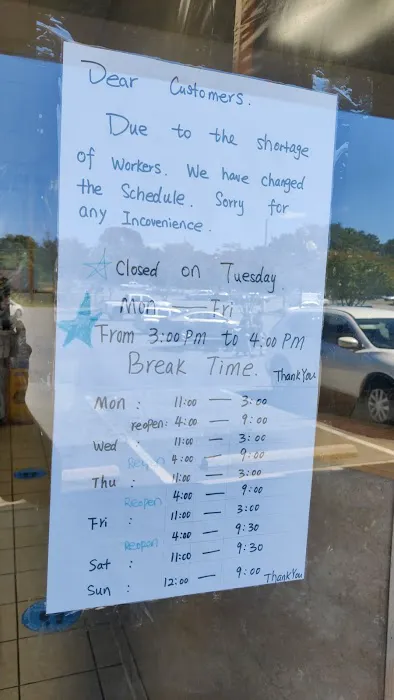 Dear Customers.
Due to the shortage
of Workers. We have changed
the Schedule. Sorry for
any Incovenience.
Closed on Tuesday.
Mon — Fri
From 3:00 PM to 4:00 PM
Break Time. Thank You
Mon : 11:00 — 3:00
reopen: 4:00 — 9:00
Wed : 11:00 — 3:00
Reopen 4:00 — 9:00
Thu : 11:00 — 3:00
Reopen 4:00 — 9:00
Fri : 11:00 — 3:00
Reopen 4:00 — 9:30
Sat : 11:00 — 9:30
Sun : 12:00 — 9:00 Thank You